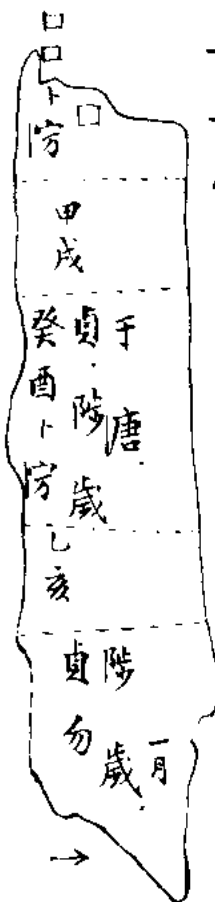 □□卜㝐
□
甲戌
癸酉卜㝐
貞．陟歲
于唐．
乙亥
貞勿
陟歲．
一月